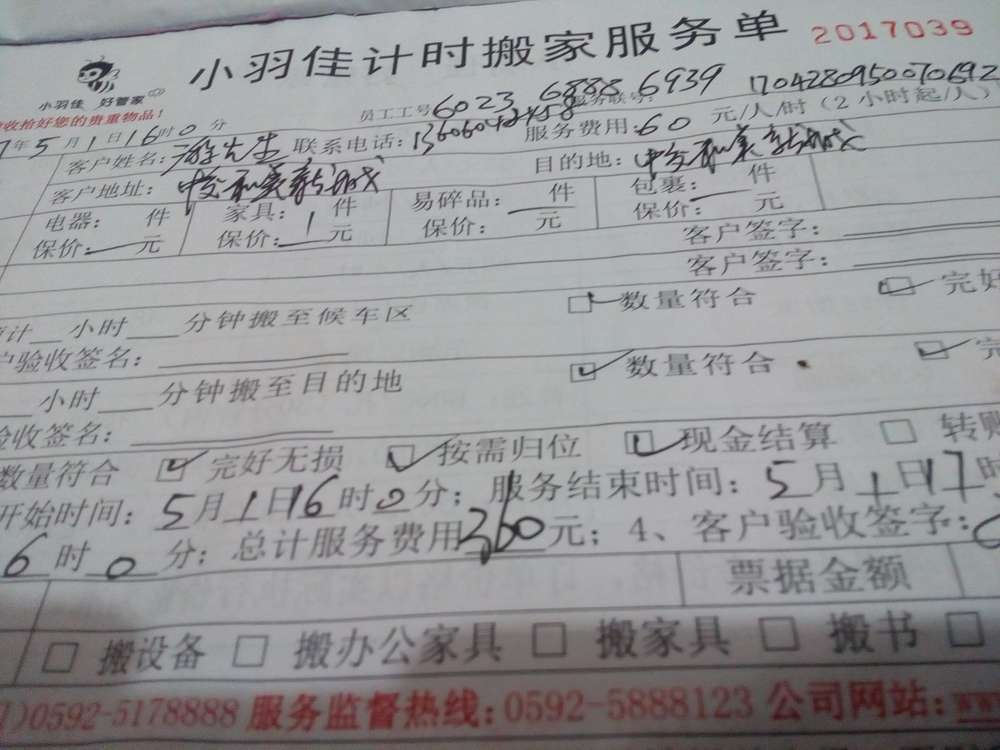 小羽佳计时搬家服务单 2017039
小羽佳 好管家
收拾好您的贵重物品！ 员工工号 6023 6888 6939 服务联号： 170428095007069
年5月1日16时0分 联系电话： 服务费用：60 元/人/时（2小时起/人）
客户姓名：游先生 目的地：中交和美新城
客户地址：中交和美新城
电器： 件 家具：1件 易碎品： 件 包裹： 件
保价： 元 保价： 元 保价： 元 保价： 元
客户签字：
客户签字：
计 小时 分钟搬至候车区 数量符合 完好
户验收签名：
小时 分钟搬至目的地 数量符合 完
验收签名：
数量符合 完好无损 按需归位 现金结算 转账
开始时间：5月1日16时0分；服务结束时间：5月1日17时
6时0分；总计服务费用360元；4、客户验收签字：
票据金额
搬设备 搬办公家具 搬家具 搬书
)0592-5178888 服务监督热线：0592-5888123 公司网站：www